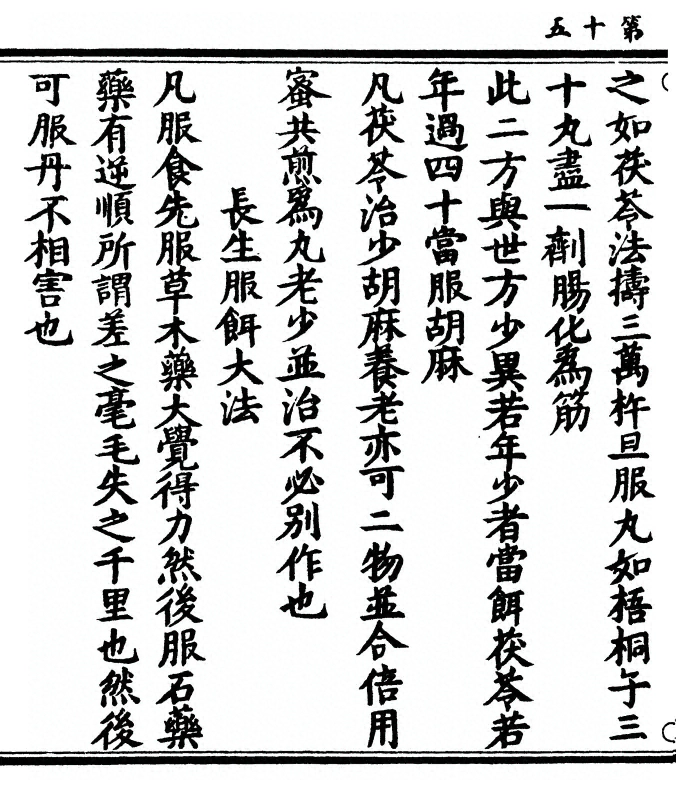 第十五
之如茯苓法擣三萬杵旦服丸如梧桐子三
十丸盡一劑腸化爲筋
此二方與世方少異若年少者當餌茯苓若
年過四十當服胡麻
凡茯苓治少胡麻養老亦可二物並合倍用
蜜共煎爲丸老少並治不必別作也
長生服餌大法
凡服食先服草木藥大覺得力然後服石藥
藥有逆順所謂差之毫毛失之千里也然後
可服丹不相害也